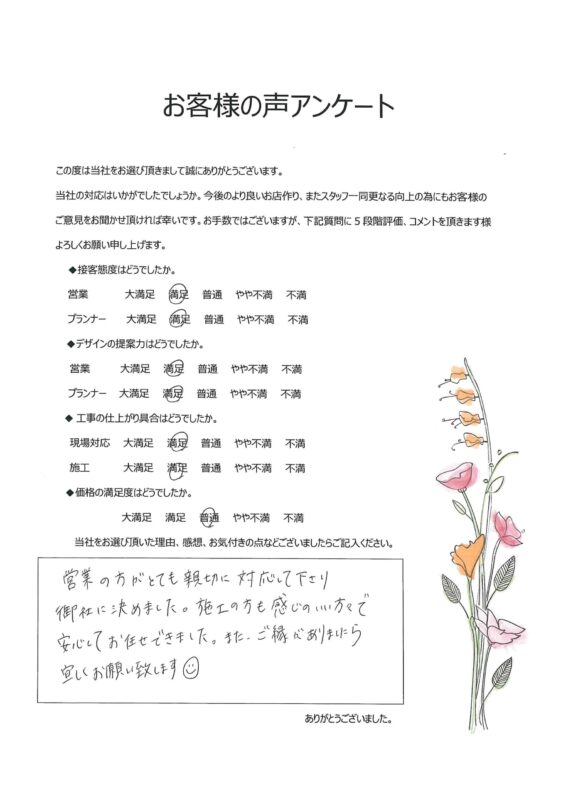 お客様の声アンケート
この度は当社をお選び頂きまして誠にありがとうございます。
当社の対応はいかがでしたでしょうか。今後のより良いお店作り、またスタッフ一同更なる向上の為にもお客様の
ご意見をお聞かせ頂ければ幸いです。お手数ではございますが、下記質問に5段階評価、コメントを頂きます様
よろしくお願い申し上げます。
◆接客態度はどうでしたか。
営業 大満足 満足 普通 やや不満 不満
プランナー 大満足 満足 普通 やや不満 不満
◆デザインの提案力はどうでしたか。
営業 大満足 満足 普通 やや不満 不満
プランナー 大満足 満足 普通 やや不満 不満
◆工事の仕上がり具合はどうでしたか。
現場対応 大満足 満足 普通 やや不満 不満
施工 大満足 満足 普通 やや不満 不満
◆価格の満足度はどうでしたか。
大満足 満足 普通 やや不満 不満
当社をお選び頂いた理由、感想、お気付きの点などございましたらご記入ください。
営業の方がとても親切に対応して下さり
御社に決めました。施工の方も感じのいい方々で
安心してお任せできました。また、ご縁がありましたら
宜しくお願い致します☺
ありがとうございました。